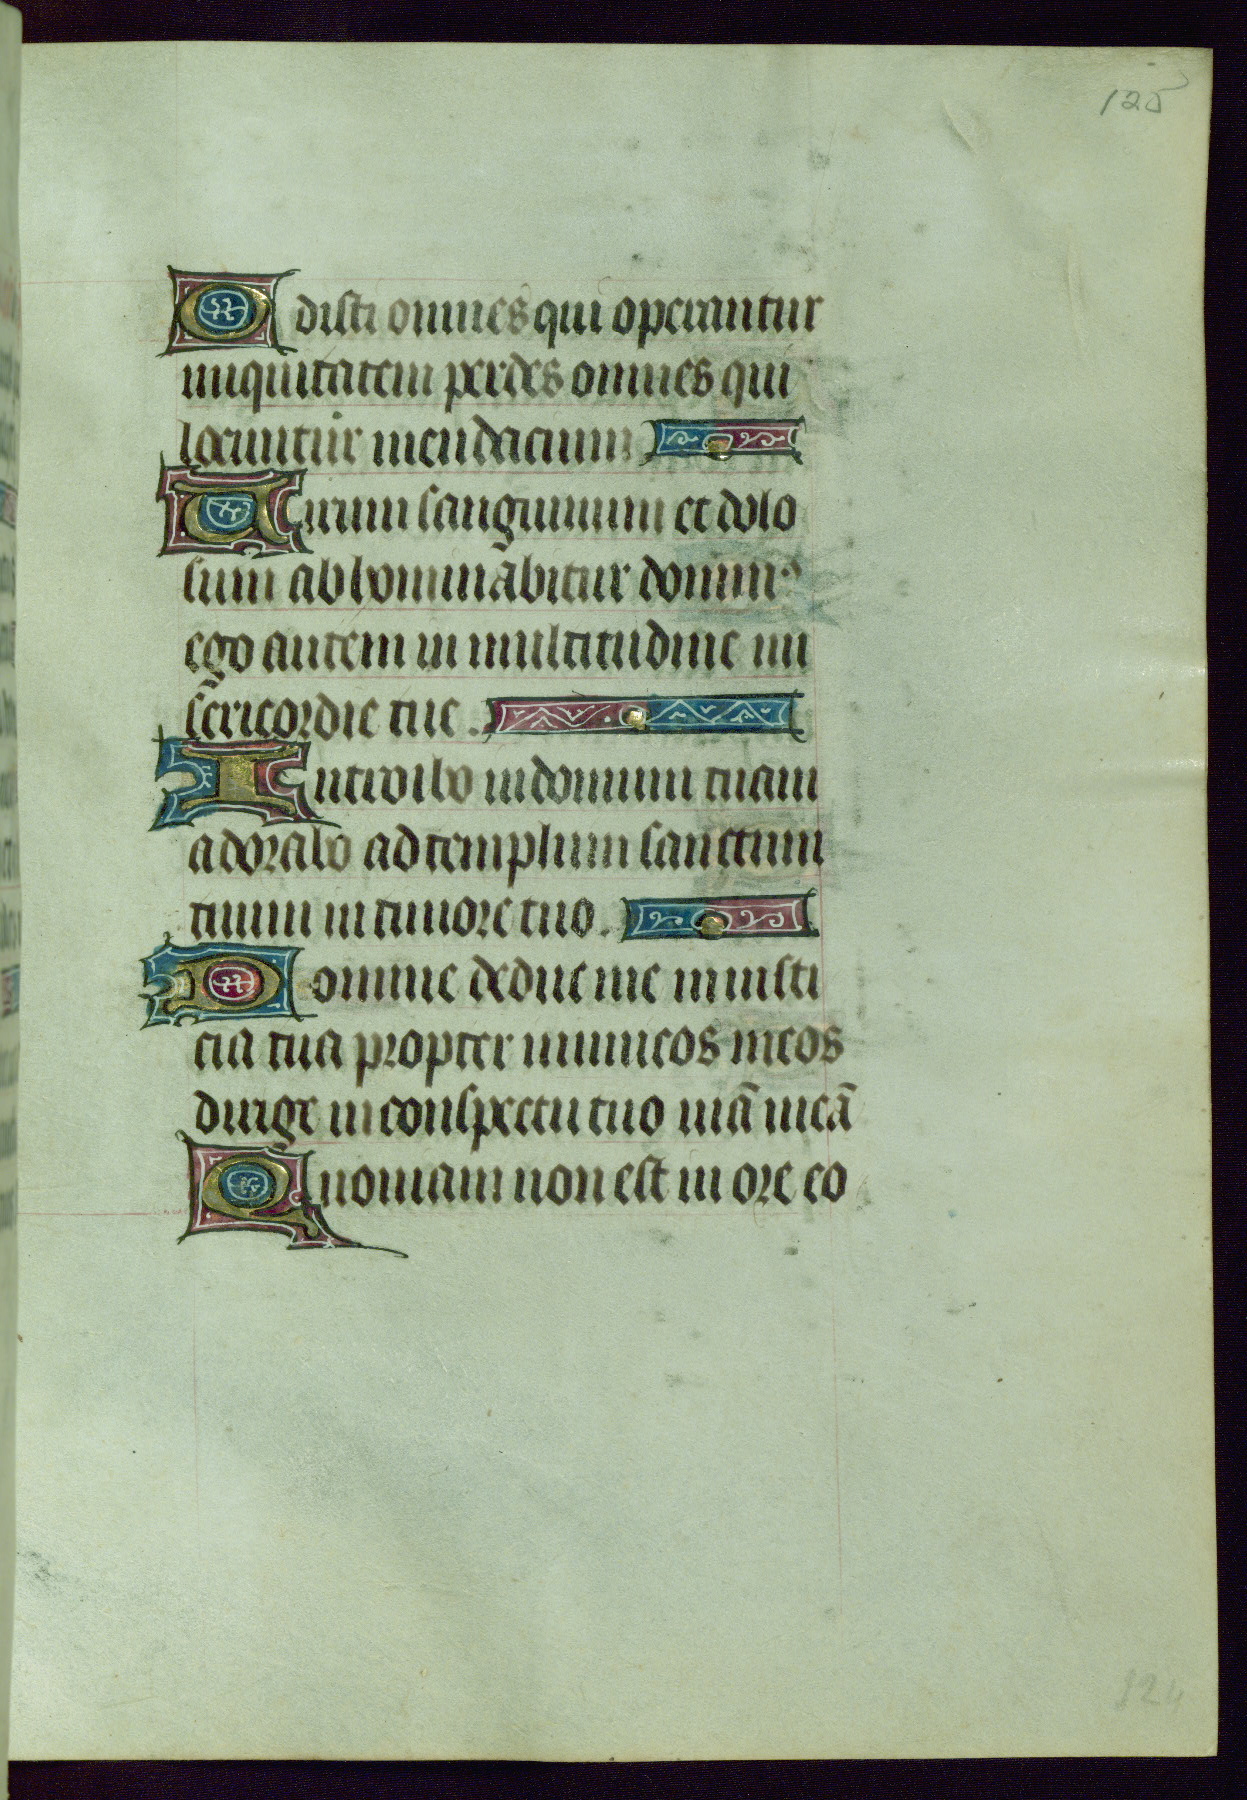 125
Odisti omnes qui operantur
iniquitatem perdes omnes qui
locuntur mendacium
Uirum sanguinum et dolo
sum abhominabitur domin⁹
ego autem in multitudine mi
sericordie tue.
Introibo in domum tuam
adorabo ad templum sanctum
tuum in timore tuo.
Domine deduc me in iusti
cia tua propter inimicos meos
dirige in conspectu tuo uiā meā
Quoniam non est in ore eo
124